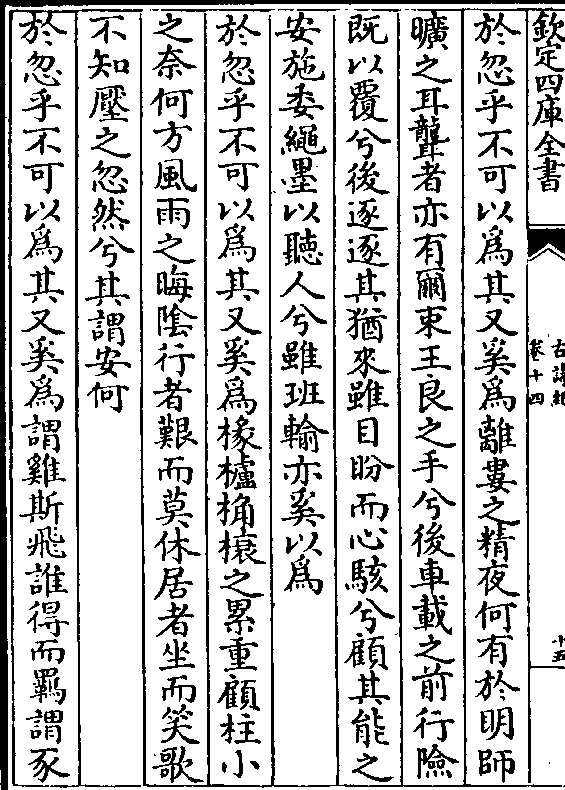 欽定四庫全書
古詩紀
卷十四
十五
於忽乎不可以爲其又奚爲離婁之精夜何有於明師
曠之耳聾者亦有爾束王良之手兮後車載之前行險
既以覆兮後逐逐其猶來雖目盼而心駭兮顧其能之
安施委繩墨以聽人兮雖班輸亦奚以爲
於忽乎不可以爲其又奚爲椽櫨桷榱之累重顧柱小
之奈何方風雨之晦陰行者艱而莫休居者坐而笑歌
不知壓之忽然兮其謂安何
於忽乎不可以爲其又奚爲謂雞斯飛誰得而羈謂豕